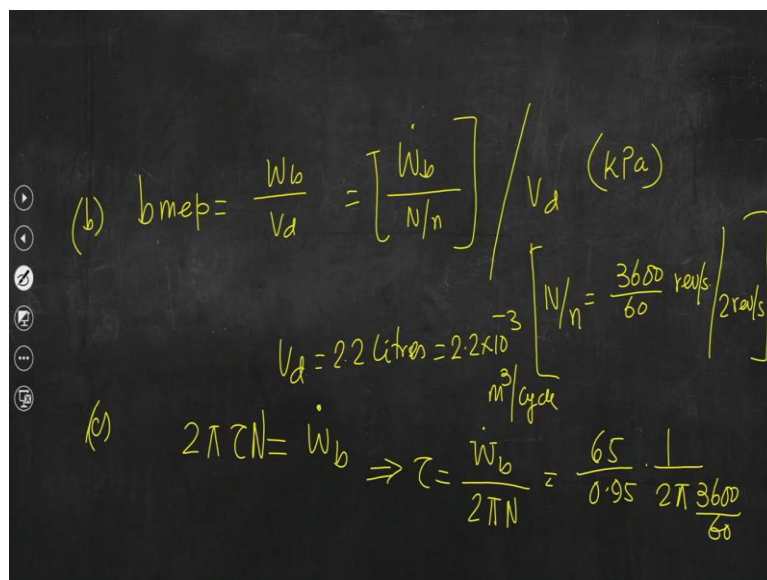 (b) bmep = Wb/Vd = [Ẇb/(N/n)] / Vd (kPa)
[N/n = 3600/60 rev/s / 2 rev/s]
Vd = 2.2 litres = 2.2×10⁻³ m³/cycle
(c) 2πτN = Ẇb ⇒ τ = Ẇb/2πN = 65/0.95 · 1/(2π 3600/60)